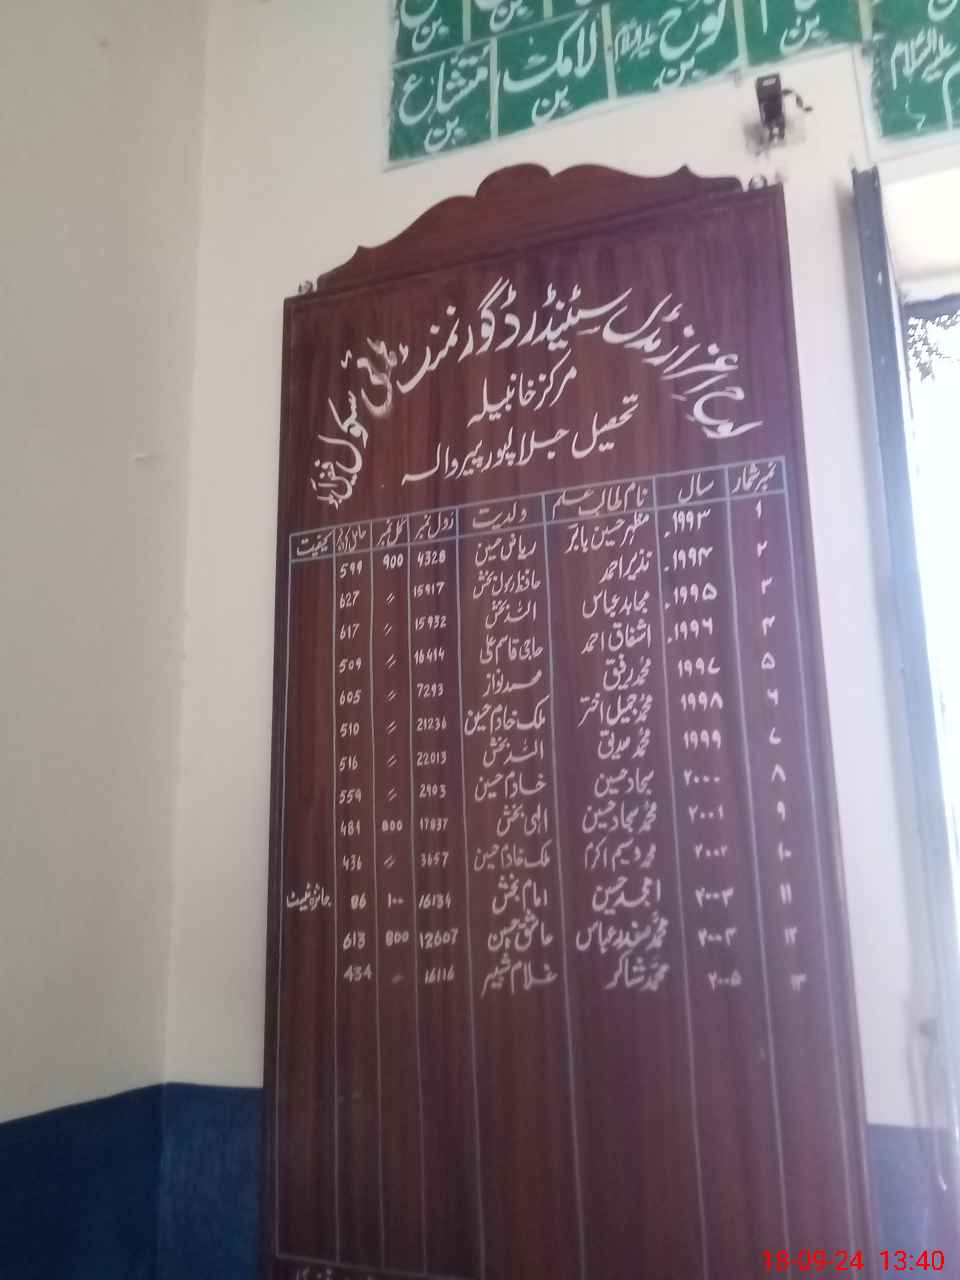 متشالخ بن
لامک بن
نوح علیہ السلام بن
بن
علیہ السلام
لوح اعزاز مڈل سٹینڈرڈ گورنمنٹ ہائی سکول
مرکز خانبیلہ
تحصیل جلالپور پیروالہ
نمبر شمار سال نام طالب علم ولدیت رول نمبر کل نمبر کیفیت
۱ ۱۹۹۳ء مظہر حسین بابر ریاض حسین 4328 900 599
۲ ۱۹۹۴ء نذیر احمد حافظ رسول بخش 15917 〃 627
۳ ۱۹۹۵ء مجاہد عباس اللہ بخش 15932 〃 617
۴ ۱۹۹۶ء اشفاق احمد حاجی قاسم علی 16414 〃 509
۵ ۱۹۹۷ محمد رفیق محمد نواز 7293 〃 605
۶ ۱۹۹۸ محمد جمیل اختر ملک خادم حسین 21236 〃 510
۷ ۱۹۹۹ محمد صدیق اللہ بخش 22013 〃 516
۸ ۲۰۰۰ سجاد حسین خادم حسین 2903 〃 559
۹ ۲۰۰۱ محمد سجاد حسین الہی بخش 17837 800 481
۱۰ ۲۰۰۲ محمد وسیم اکرم ملک خادم حسین 3657 〃 436
۱۱ ۲۰۰۳ امجد حسین امام بخش 16134 ۱۰۰ 86 جائزہ ٹیسٹ
۱۲ ۲۰۰۴ محمد صفدر عباس عاشق حسین 12607 800 613
۱۳ ۲۰۰۵ محمد شاکر غلام شبیر 16116 〃 434
18-09-24 13:40